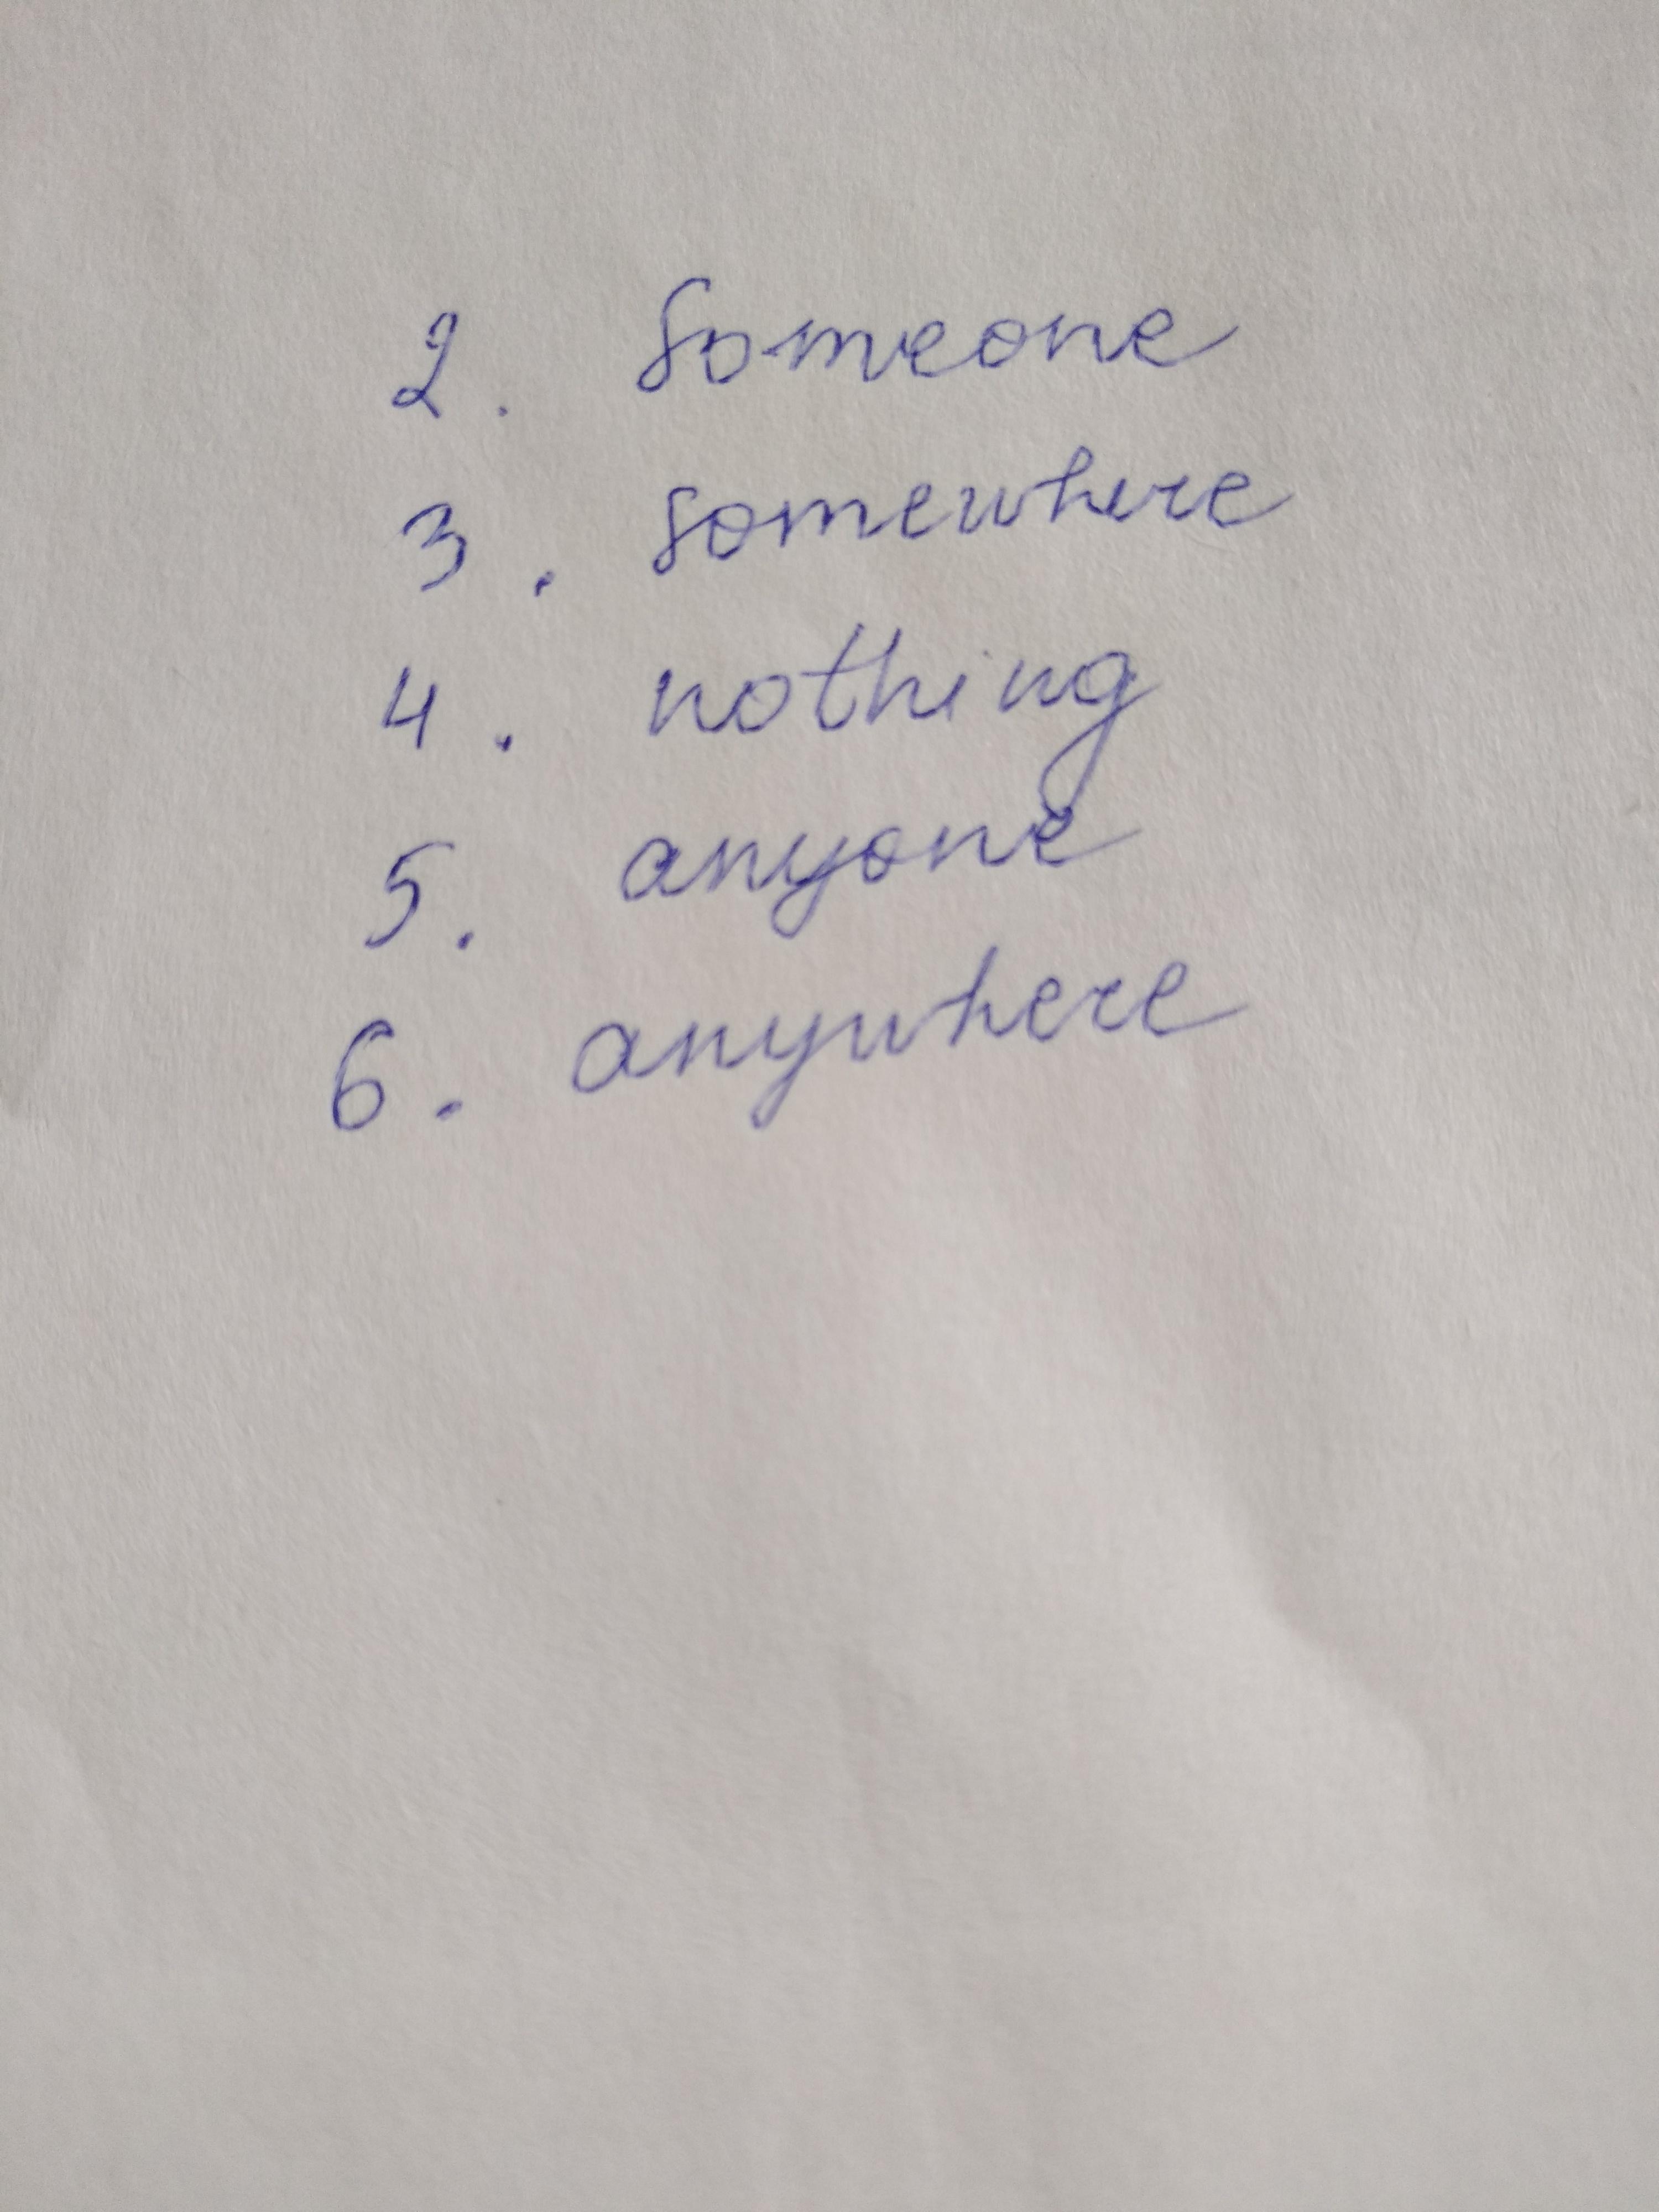 2. Someone
3. somewhere
4. nothing
5. anyone
6. anywhere